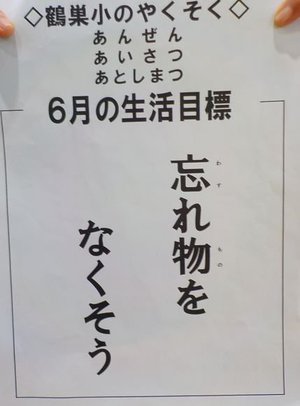 ◇鶴巣小のやくそく◇
あんぜん
あいさつ
あとしまつ
6月の生活目標
忘れ物を
わす もの
なくそう